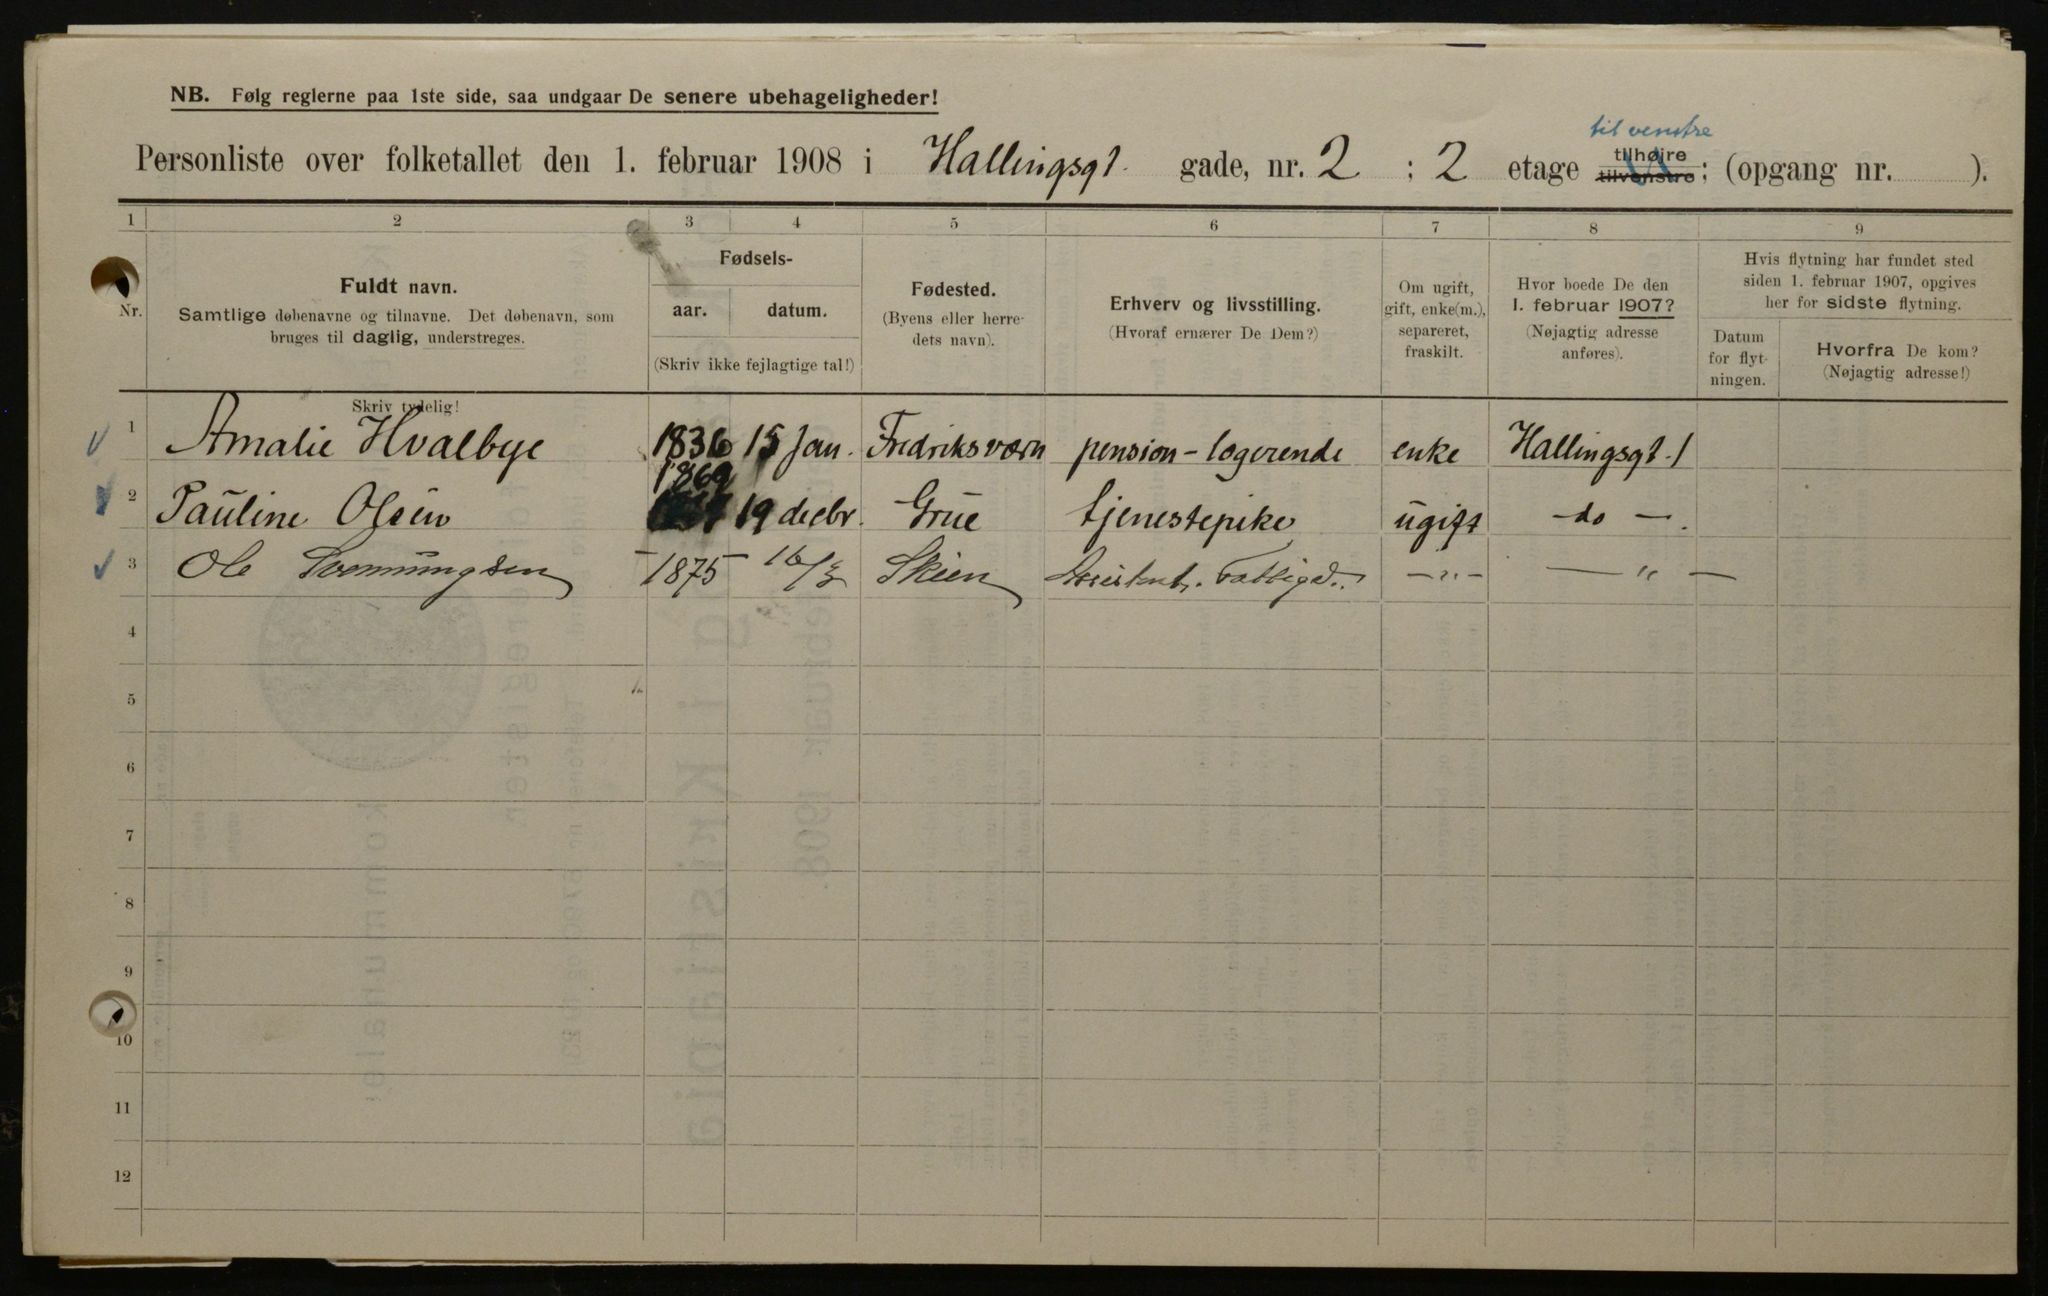 NB. Følg reglerne paa 1ste side, saa undgaar De senere ubehageligheder!
til venstre
Personliste over folketallet den 1. februar 1908 i Hallingsgt. gade, nr. 2 : 2 etage tilhøire tilvenstre; (opgang nr. ).
1 2 3 4 5 6 7 8 9
Nr.
Fuldt navn.
Samtlige døbenavne og tilnavne. Det døbenavn, som
bruges til daglig, understreges.
Skriv tydelig!
Fødsels-
aar. datum.
(Skriv ikke fejlagtige tal!)
Fødested.
(Byens eller herre-
dets navn).
Erhverv og livsstilling.
(Hvoraf ernærer De Dem?)
Om ugift,
gift, enke(m.),
separeret,
fraskilt.
Hvor boede De den
1. februar 1907?
(Nøjagtig adresse
anføres).
Hvis flytning har fundet sted
siden 1. februar 1907, opgives
her for sidste flytning.
Datum
for flyt-
ningen.
Hvorfra De kom?
(Nøjagtig adresse!)
1 Amalie Hvalbye 1836 15 Jan. Fredriksværn pension-logerende enke Hallingsgt. 1
2 Pauline Olsen 1869 19 decbr. Grue tjenestepike ugift -do-.
3 Ole Svennungsen 1875 16/ Skien Assistent. Fattigv. -"- -"-
4
5
6
7
8
9
10
11
12